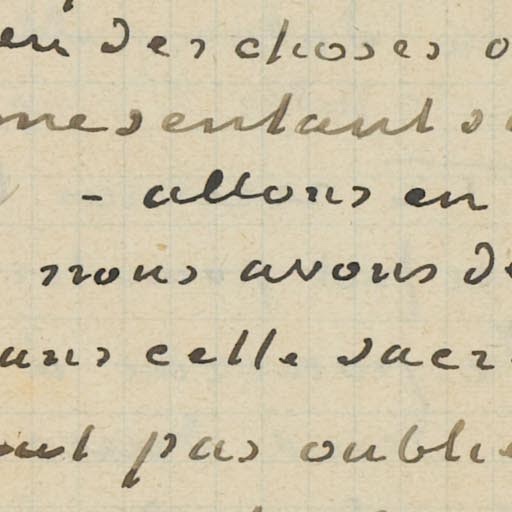 en des choses
me sentant
- allons en
nous avons de
ans celle sacr
ont pas oublie